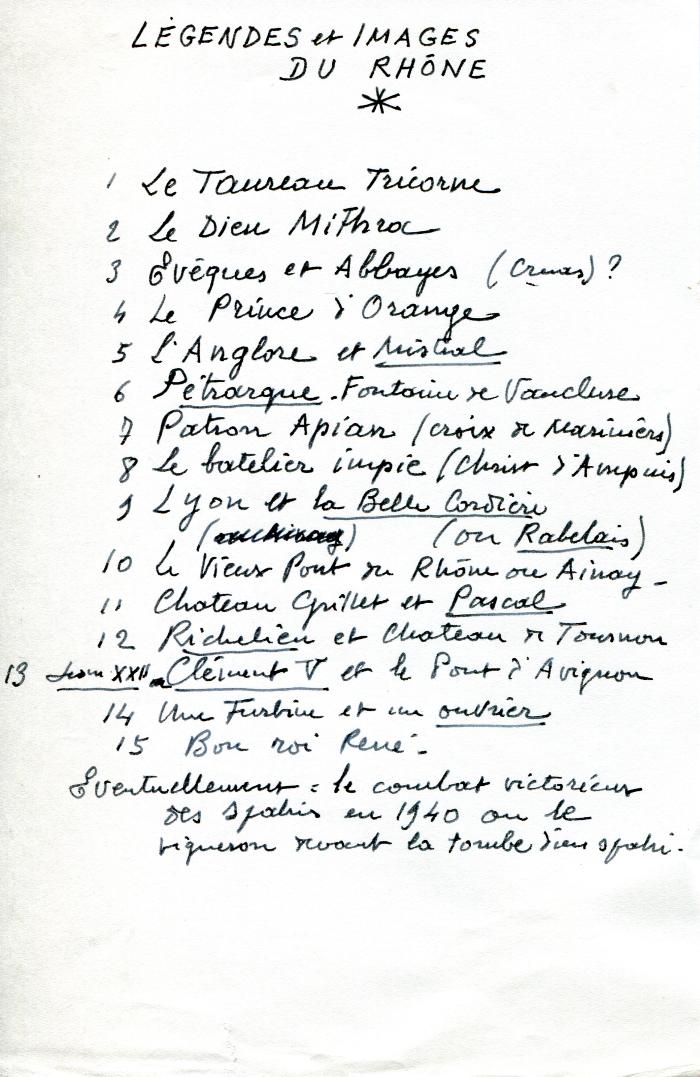 LÉGENDES et IMAGES
DU RHÔNE
1 Le Taureau Tricorne
2 Le Dieu Mithra
3 Evêques et Abbayes (Cruas) ?
4 Le Prince d'Orange
5 l'Anglore et Mistral
6 Pétrarque. Fontaine de Vaucluse
7 Patron Apian (croix de Mariniers)
8 Le batelier impie (Christ d'Ampuis)
9 Lyon et la Belle Cordière
(ou Rabelais)
10 Le Vieux Pont du Rhône ou Ainay -
11 Chateau Grillet et Pascal
12 Richelieu et Chateau de Tournon
13 Jean XXII - Clément V et le Pont d'Avignon
14 Une Turbine et un ouvrier
15 Bon roi René -
Eventuellement = le combat victorieux
des spahis en 1940 ou le
vigneron devant la tombe d'un spahi.